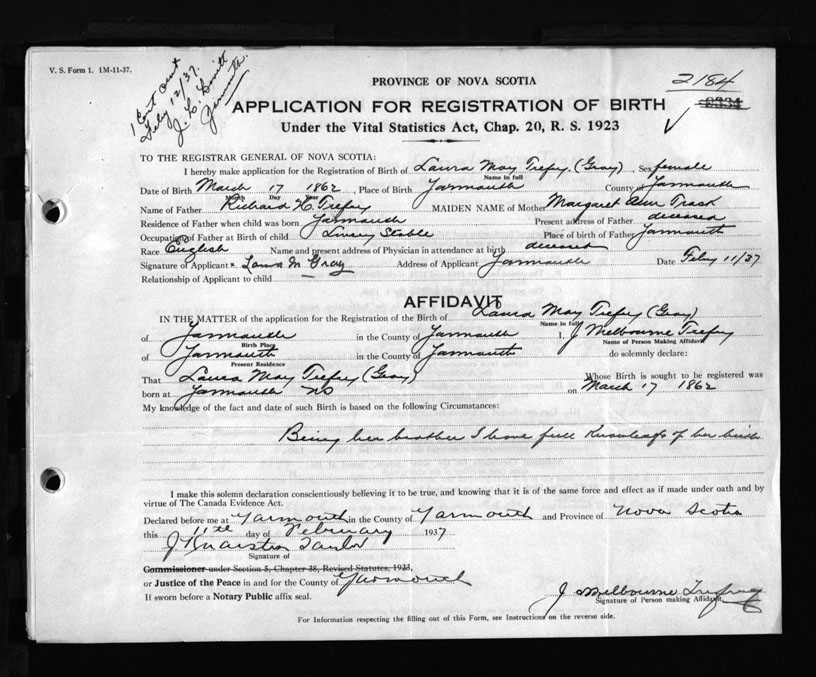 V. S. Form 1. 1M-11-37.
1 Cert sent
Feby 12/37.
J. L.
Yarmouth.
2184
PROVINCE OF NOVA SCOTIA
APPLICATION FOR REGISTRATION OF BIRTH
Under the Vital Statistics Act, Chap. 20, R. S. 1923
TO THE REGISTRAR GENERAL OF NOVA SCOTIA:
I hereby make application for the Registration of Birth of Laura May Trefry (Gray), Sex female
Name in full
Date of Birth March 17 1862, Place of Birth Yarmouth County of Yarmouth
Month Day Year
Name of Father Richard H. Trefry MAIDEN NAME of Mother Margaret Ann Trask
Residence of Father when child was born Yarmouth Present address of Father deceased
Occupation of Father at Birth of child Livery Stable Place of birth of Father Yarmouth
Race English Name and present address of Physician in attendance at birth deceased
Signature of Applicant Laura M Gray Address of Applicant Yarmouth Date Feby 11/37
Relationship of Applicant to child
AFFIDAVIT
IN THE MATTER of the application for the Registration of the Birth of Laura May Trefry (Gray)
Name in full
of Yarmouth in the County of Yarmouth I, J Melbourne Trefry
Birth Place Name of Person Making Affidavit
of Yarmouth in the County of Yarmouth do solemnly declare:
Present Residence
That Laura May Trefry (Gray) Whose Birth is sought to be registered was
born at Yarmouth NS on March 17 1862
My knowledge of the fact and date of such Birth is based on the following Circumstances:
Being her brother I have full Knowledge of her birth
I make this solemn declaration conscientiously believing it to be true, and knowing that it is of the same force and effect as if made under oath and by
virtue of The Canada Evidence Act.
Declared before me at Yarmouth in the County of Yarmouth and Province of Nova Scotia
this 11th day of February 1937
Signature of
Commissioner under Section 5, Chapter 38, Revised Statutes, 1923,
or Justice of the Peace in and for the County of Yarmouth
If sworn before a Notary Public affix seal.
J Melbourne Trefry
Signature of Person making Affidavit.
For Information respecting the filling out of this Form, see Instructions on the reverse side.